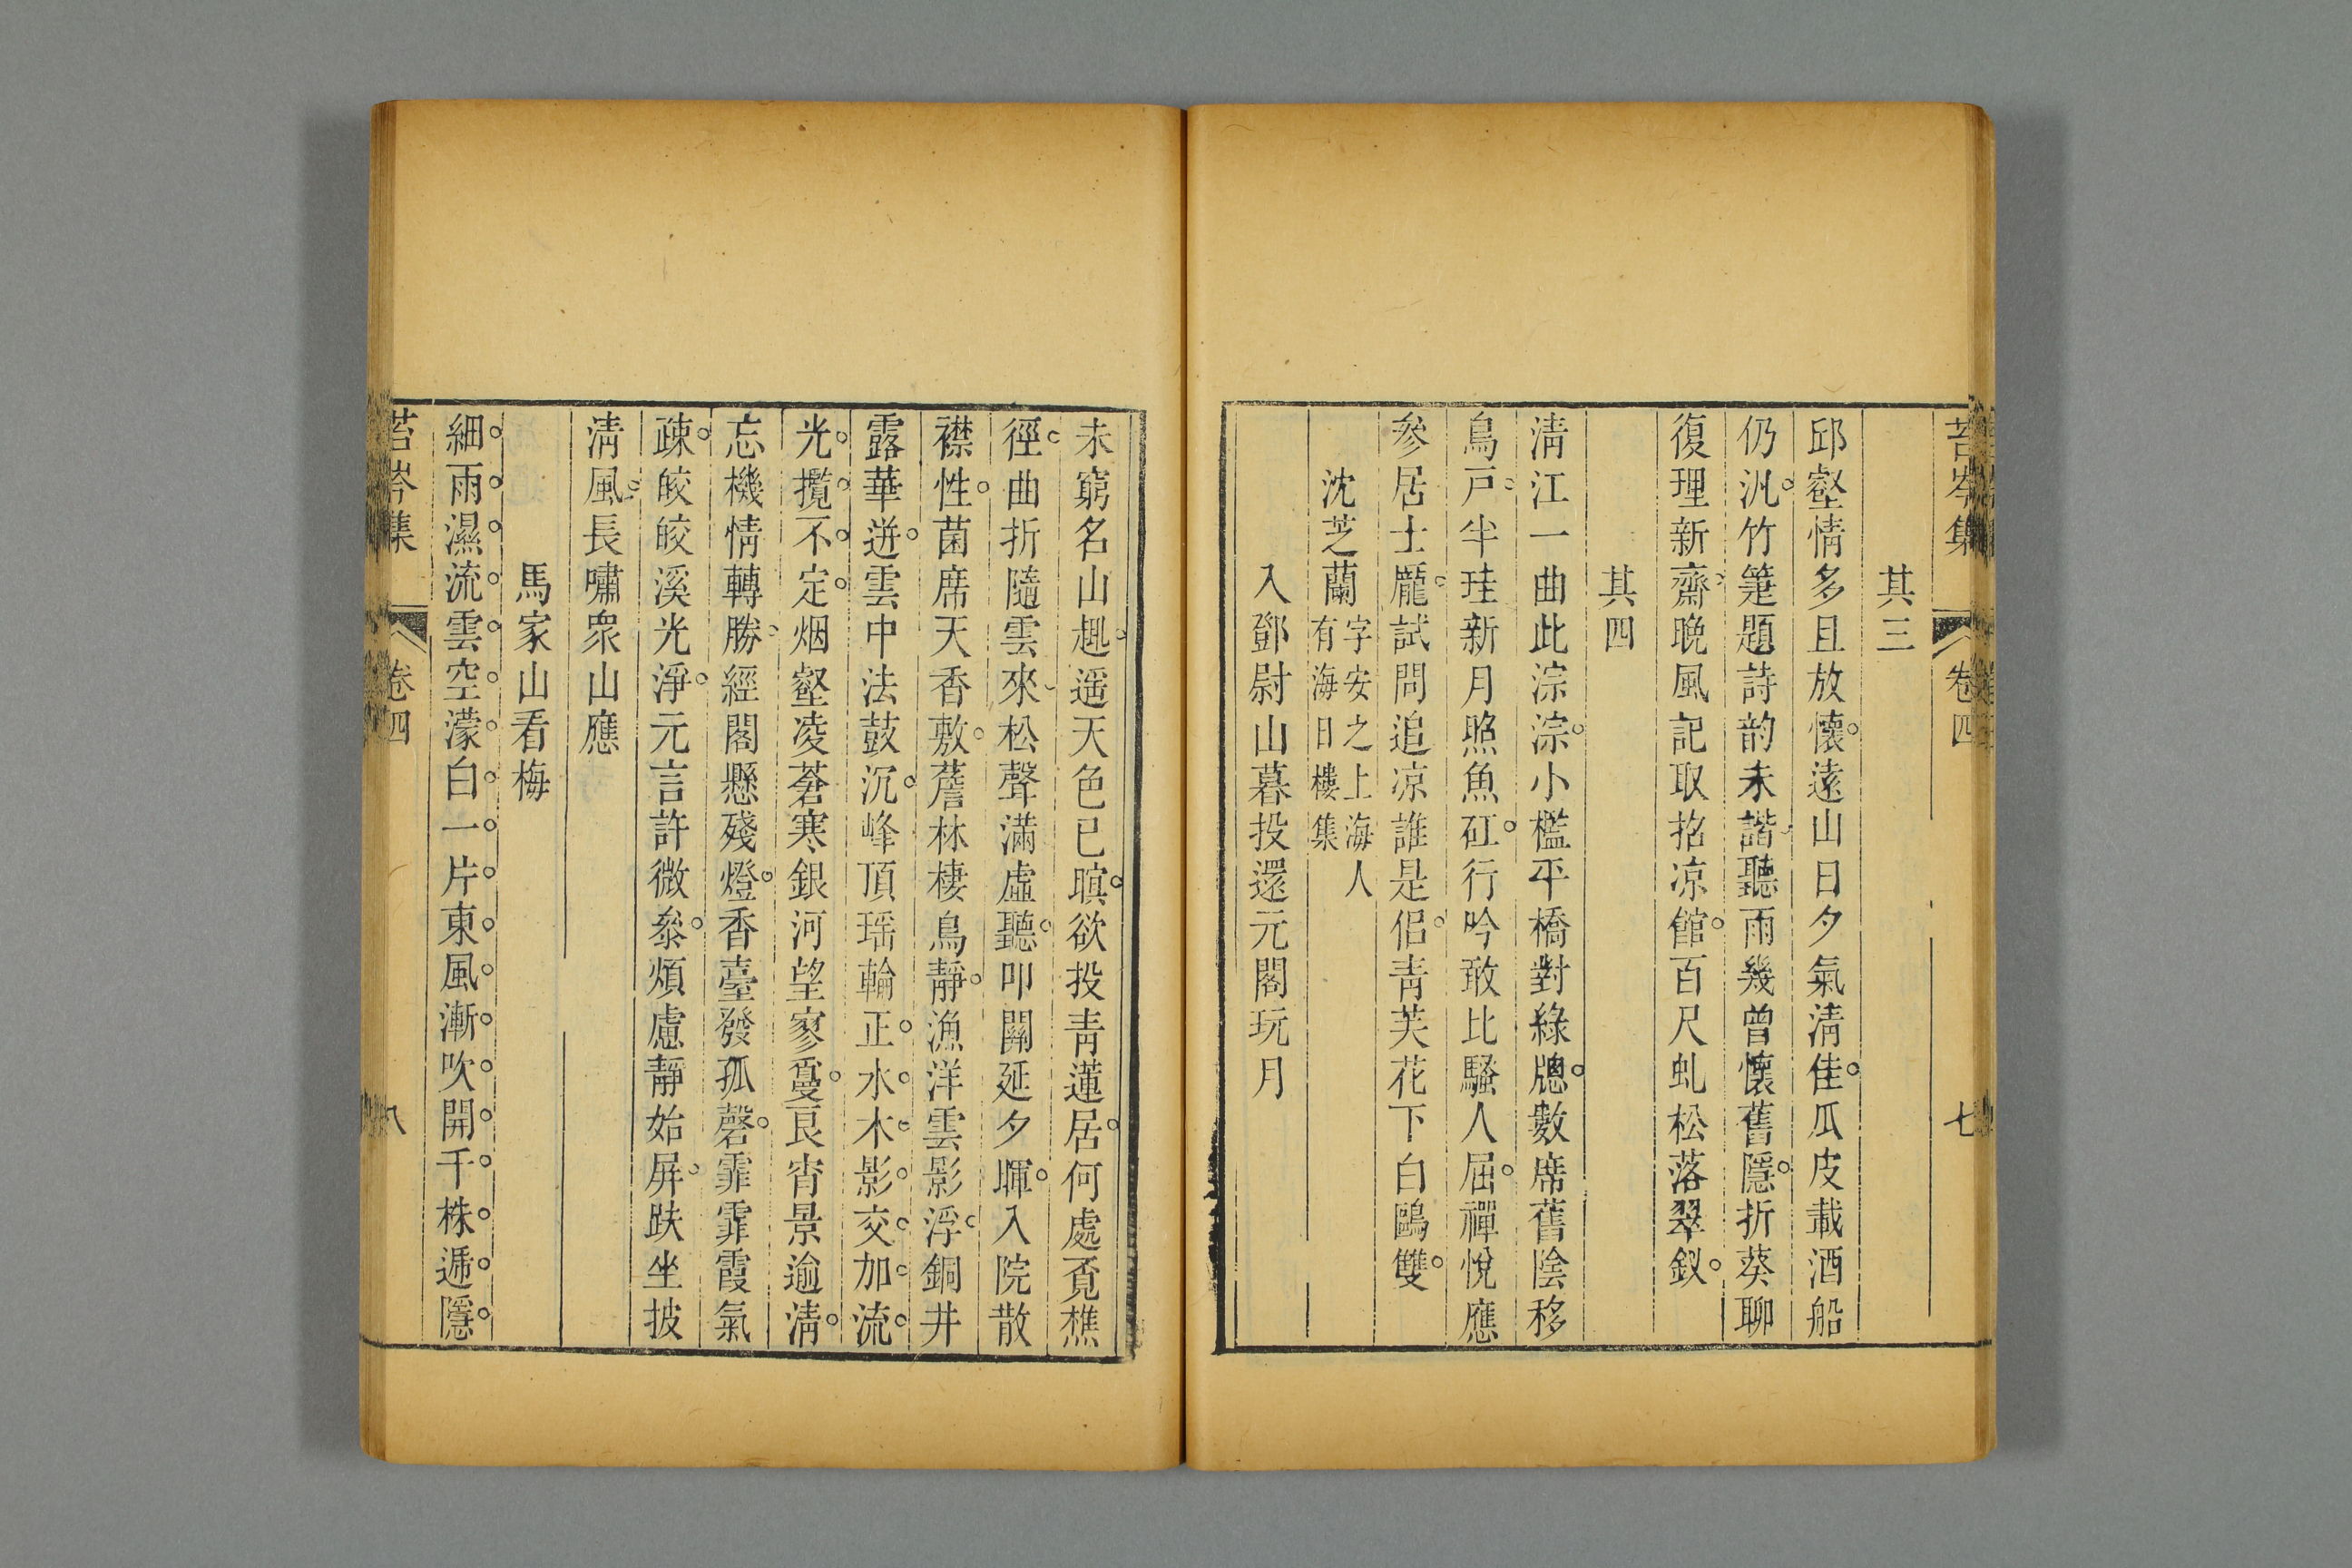 苔岑集 卷四 七
其三
邱壑情多且放懷遠山日夕氣清佳瓜皮載酒船
仍汎竹箑題詩韵未諧聽雨幾曾懷舊隱折葵聊
復理新齋晚風記取招凉館百尺虬松落翠釵
其四
清江一曲此淙淙小檻平橋對綠牕數席舊陰移
鳥戶半珪新月照魚矼行吟敢比騷人屈禪悅應
參居士龐試問追凉誰是侶青芙花下白鷗雙
沈芝蘭字安之上海人有海日樓集
入鄧尉山暮投還元閣玩月
未窮名山趣遥天色已暝欲投青蓮居何處覓樵
徑曲折隨雲來松聲滿虛聽叩關延夕暉入院散
襟性菌席天香敷薝林棲鳥靜漁洋雲影浮銅井
露華迸雲中法鼓沉峰頂瑶輪正水木影交加流
光攬不定烟壑凌蒼寒銀河望寥夐良宵景逾清
忘機情轉勝經閣懸殘燈香臺發孤磬霏霏霞氣
疎皎皎溪光淨元言許微叅煩慮靜始屏趺坐披
清風長嘯衆山應
馬家山看梅
細雨濕流雲空濛白一片東風漸吹開千株遞隱
苔岑集 卷四 八